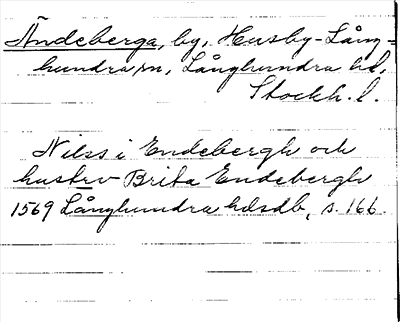 Ändeberga, by, Husby-Lång-
hundra sn, Långhundra hd,
Stockh. l.
Nilss i Endebergh och
hustrv Brita Endebergh
1569 Långhundra hdsdb, s. 166.